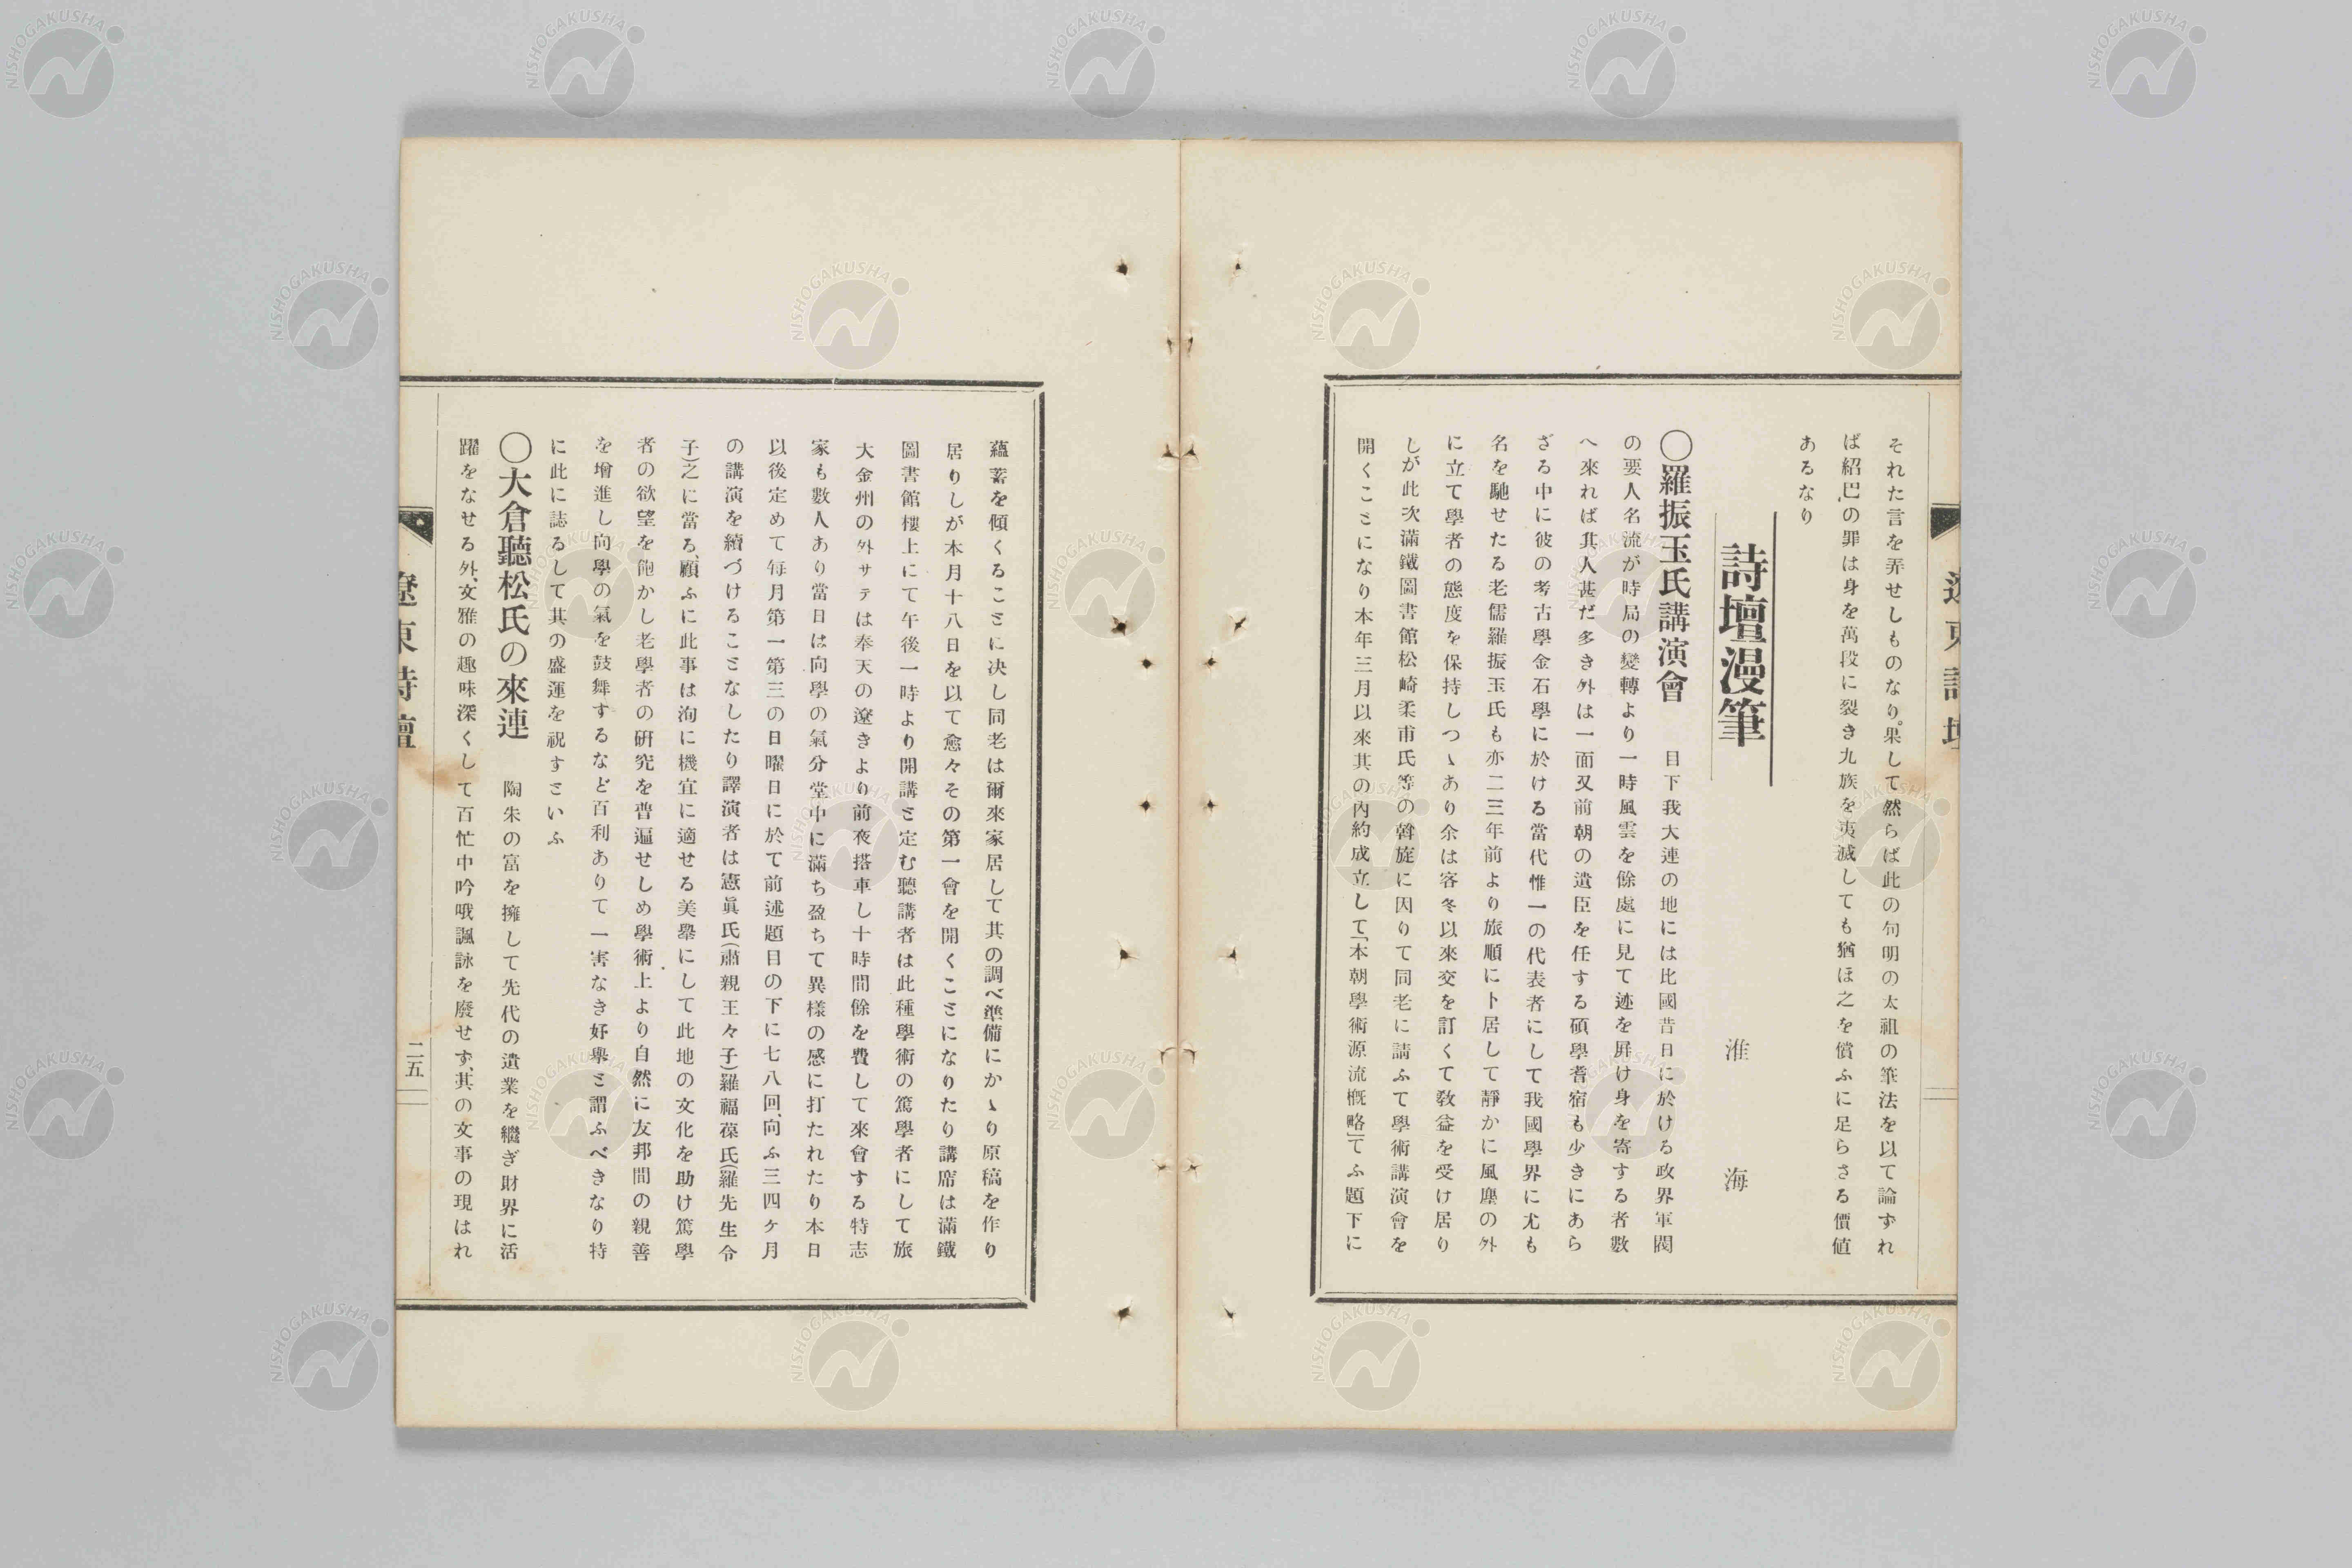 それた言を弄せしものなり。果して然らば此の句明の太祖の筆法を以て論ずれ
ば紹巴の罪は身を萬段に裂き九族を夷滅しても猶ほ之を償ふに足らさる價値
あるなり
詩壇漫筆
淮海
〇羅振玉氏講演會 目下我大連の地には比國昔日に於ける政界軍閥
の要人名流が時局の變轉より一時風雲を餘處に見て迹を屛け身を寄する者數
へ來れば其人甚だ多き外は一面又前朝の遺臣を任する碩學耆宿も少きにあら
ざる中に彼の考古學金石學に於ける當代惟一の代表者にして我國學界に尤も
名を馳せたる老儒羅振玉氏も亦二三年前より旅順に卜居して靜かに風塵の外
に立て學者の態度を保持しつゝあり余は客冬以來交を訂くて敎益を受け居り
しが此次滿鐵圖書館松崎柔甫氏等の斡旋に因りて同老に請ふて學術講演會を
開くことになり本年三月以來其の內約成立して「本朝學術源流槪略」てふ題下に
蘊蓄を傾くることに決し同老は爾來家居して其の調べ準備にかゝり原稿を作り
居りしが本月十八日を以て愈々その第一會を開くことになりたり講席は滿鐵
圖書館樓上にて午後一時より開講と定む聽講者は此種學術の篤學者にして旅
大金州の外サテは奉天の遼きより前夜搭車し十時間餘を費して來會する特志
家も數人あり當日は向學の氣分堂中に滿ち盈ちて異樣の感に打たれたり本日
以後定めて每月第一第三の日曜日に於て前述題目の下に七八回、向ふ三四ヶ月
の講演を續づけることなしたり譯演者は憲眞氏(肅親王々子)羅福葆氏(羅先生令
子)之に當る、願ふに此事は洵に機宜に適せる美擧にして此地の文化を助け篤學
者の欲望を飽かし老學者の硏究を普遍せしめ學術上より自然に友邦間の親善
を增進し向學の氣を鼓舞するなど百利ありて一害なき好擧と謂ふべきなり特
に此に誌るして其の盛運を祝すといふ
〇大倉聽松氏の來連 陶朱の富を擁して先代の遺業を繼ぎ財界に活
躍をなせる外、文雅の趣味深くして百忙中吟哦諷詠を廢せず、其の文事の現はれ
遼東詩壇
二五
遼東詩壇
NISHOGAKUSHA